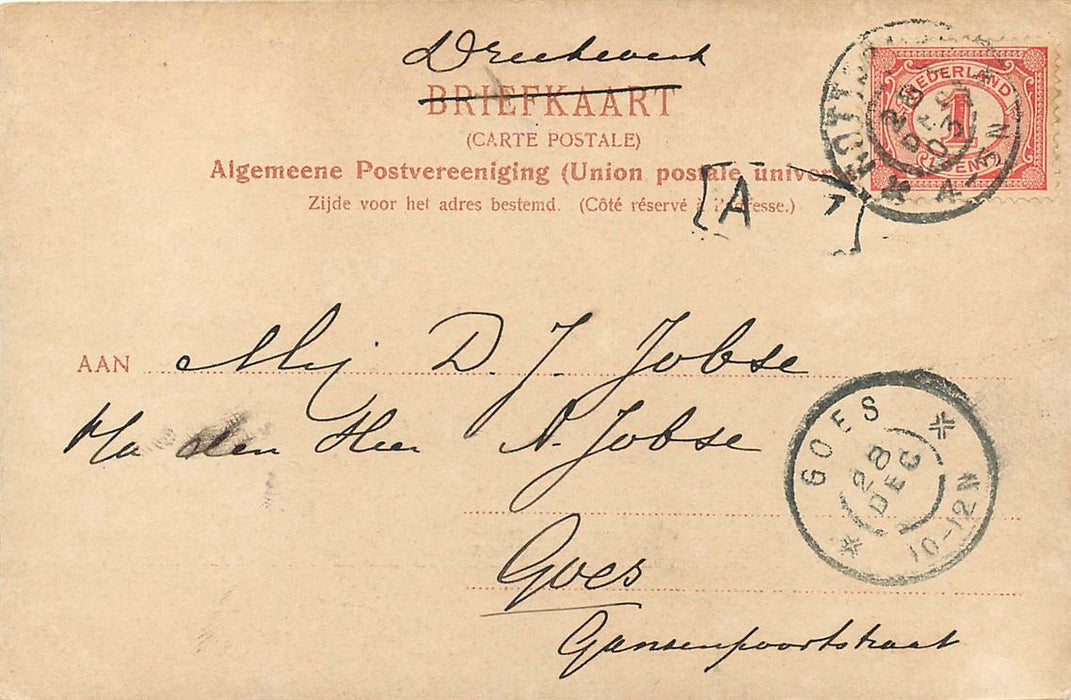 BRIEFKAART
(CARTE POSTALE)
Algemeene Postvereeniging (Union postale univer
Zijde voor het adres bestemd. (Côté réservé à l'adresse.)
NEDERLAND
1
CENT
ROTT
28 DEC 03
4-5N
A
AAN Mej D. J. Jobse
p/a den Heer A. Jobse
Goes
Gansenpoortstraat
GOES
28 DEC
10-12N